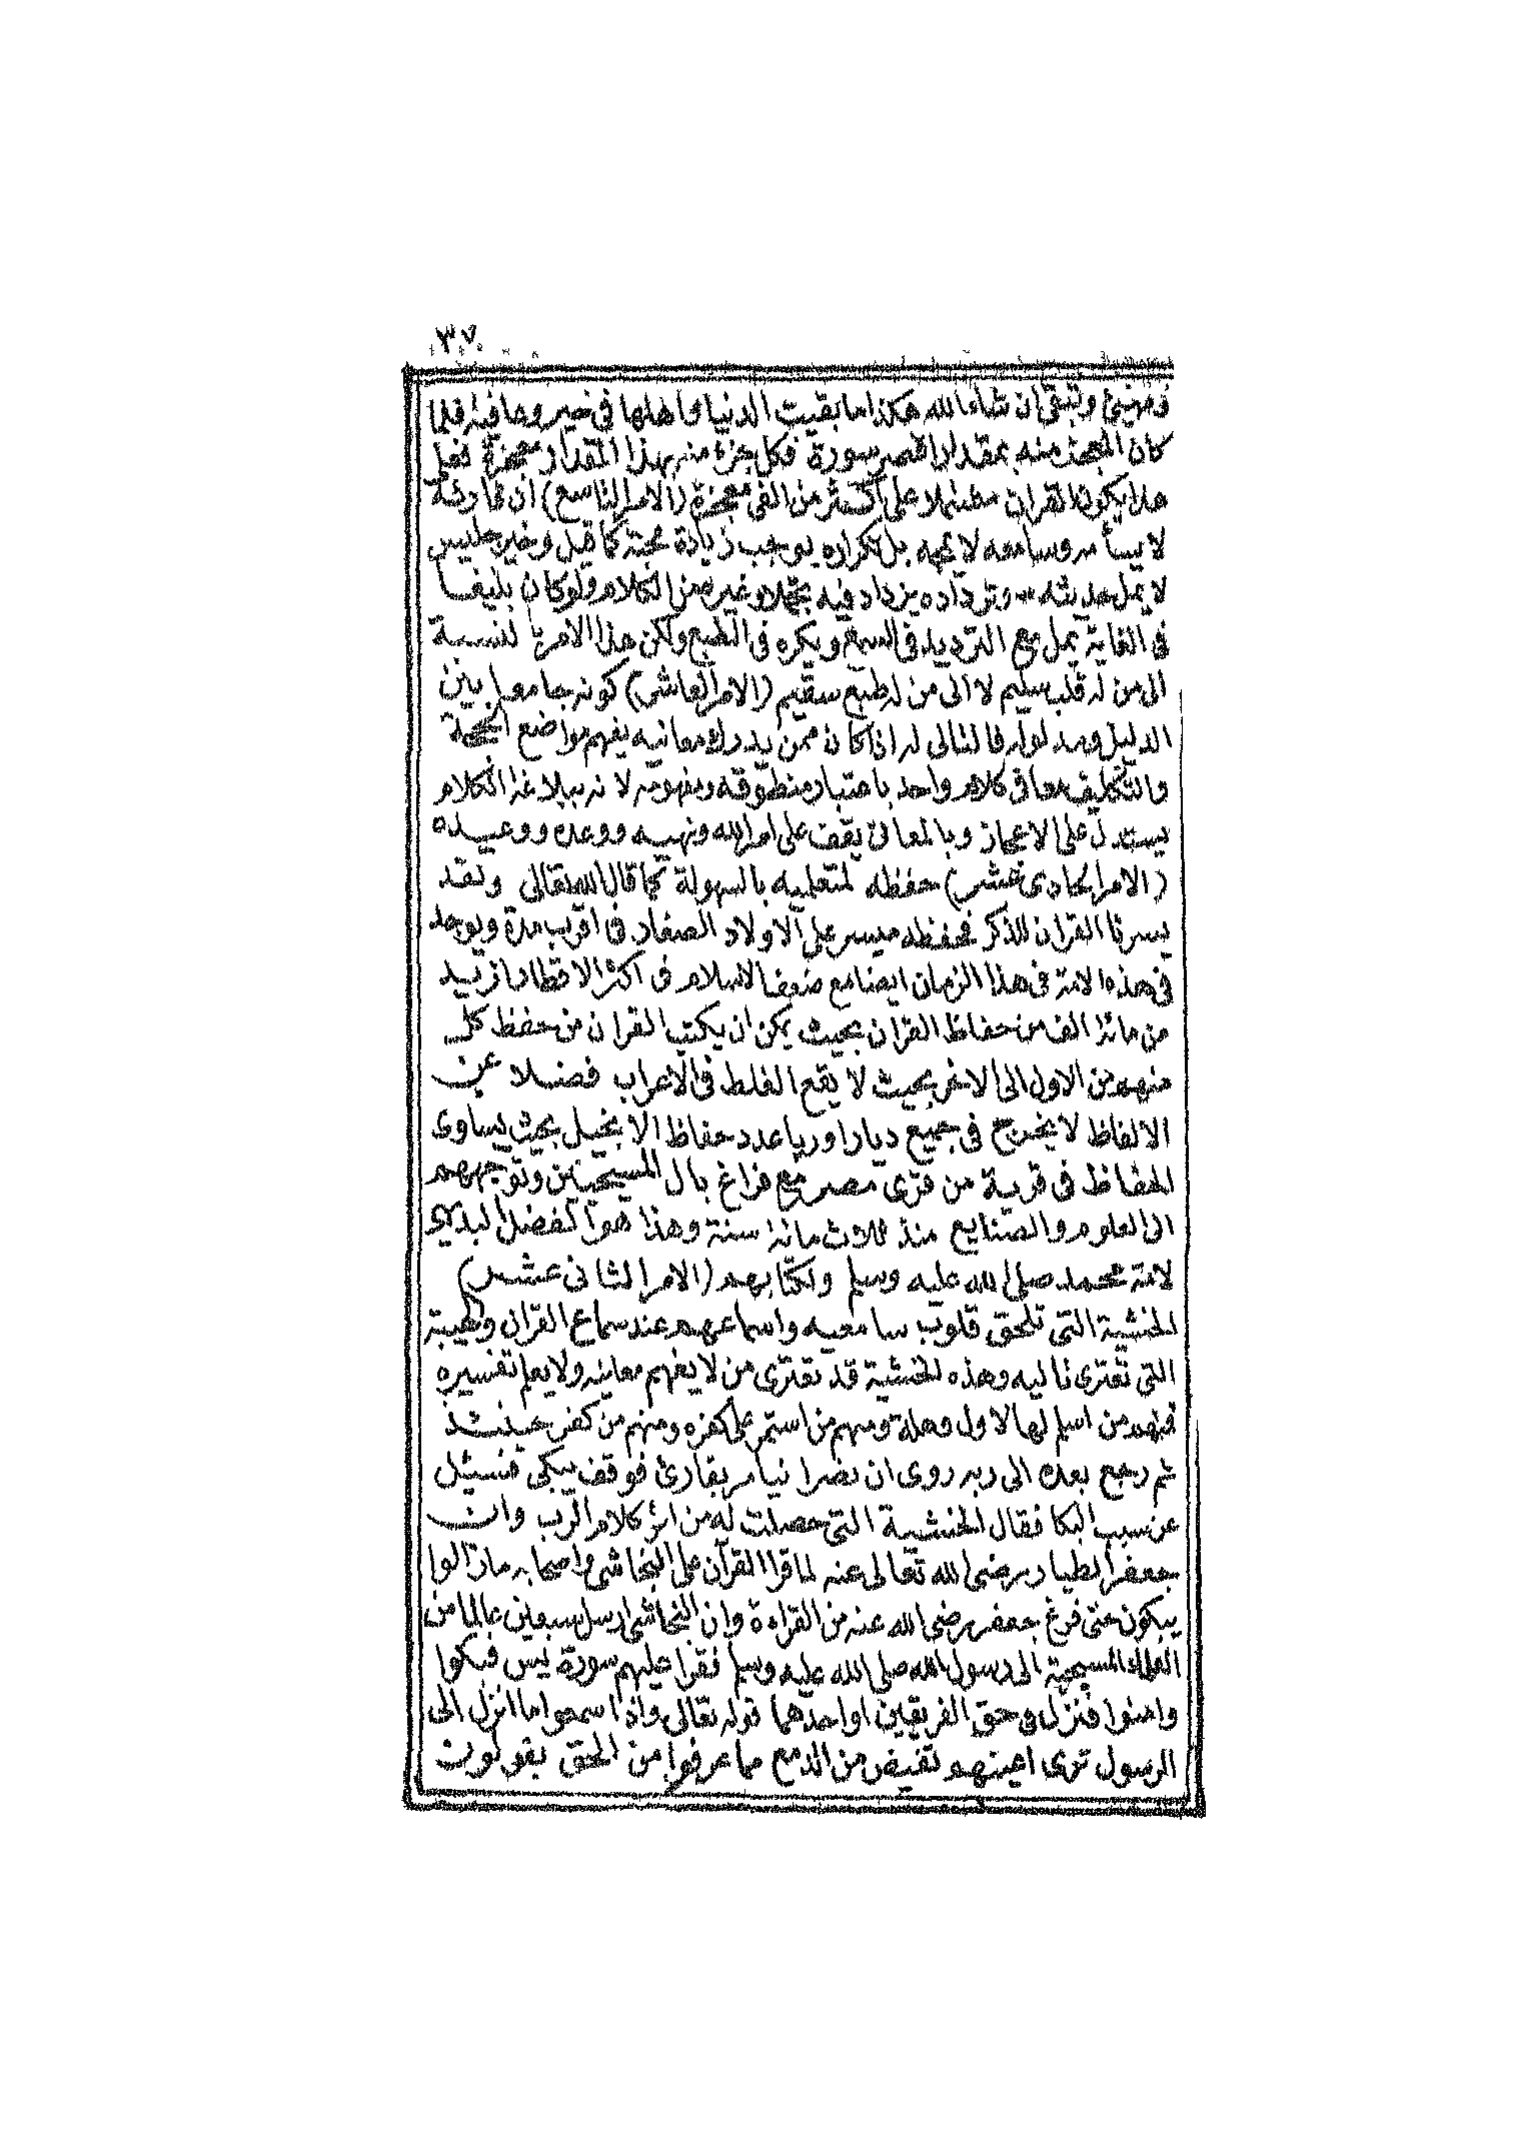 ٣٧
وتبقى ان شاء الله هكذا ما بقيت الدنيا واهلها فى خير وعافية فلما
كان المعجز منه بمقدار اقصر سورة فكل جزء منه بهذا المقدار معجزة فعلى
هذا يكون القران مشتملا على اكثر من الفى معجزة (الامر التاسع) ان قارئه
لا يسأمه وسامعه لا يمجه بل تكراره يوجب زيادة محبته كما قيل وخير جليس
لا يمل حديثه * وترداده يزداد فيه تجملا وغيره من الكلام ولو كان بليغا
فى الغاية يمل مع الترديد فى السمع ويكره فى الطبع ولكن هذا الامر بالنسبة
الى من له قلب سليم لا الى من له طبع سقيم (الامر العاشر) كونه جامعا بين
الدليل ومدلوله فالتالى له اذا كان ممن يدرك معانيه يفهم مواضع الحجة
والتكليف معا فى كلام واحد باعتبار منطوقه ومفهومه لانه ببلاغة الكلام
يستدل على الاعجاز وبالمعانى يقف على امر الله ونهيه ووعده ووعيده
(الامر الحادى عشر) حفظه لمتعلميه بالسهولة كما قال الله تعالى ولقد
يسرنا القران للذكر فحفظه ميسر على الاولاد الصغار فى اقرب مدة ويوجد
فى هذه الامة فى هذا الزمان ايضا مع ضعف الاسلام فى اكثر الاقطار ازيد
من مائة الف من حفاظ القران بحيث يمكن ان يكتب القران من حفظ كل
منهم من الاول الى الاخر بحيث لا يقع الغلط فى الاعراب فضلا عن
الالفاظ لا يخرج فى جميع ديار اوربا عدد حفاظ الانجيل بحيث يساوى
الحفاظ فى قرية من قرى مصر مع فراغ بال المسيحيين وتوجههم
الى العلوم والصنايع منذ ثلاث مائة سنة وهذا هو الفضل البديهى
لامة محمد صلى الله عليه وسلم ولكتابهم (الامر الثانى عشر)
الخشية التى تلحق قلوب سامعيه واسماعهم عند سماع القران والهيبة
التى تعترى تاليه وهذه الخشية قد تعترى من لا يفهم معانيه ولا يعلم تفسيره
فمنهم من اسلم لها لاول وهلة ومنهم من استمر على كفره ومنهم من كفر حينئذ
ثم رجع بعده الى ربه روى ان نصرانيا مر بقارئ فوقف يبكى فسئل
عن سبب البكا فقال الخشية التى حصلت له من اثر كلام الرب وان
جعفر الطيار رضى الله تعالى عنه لما قرا القرآن على النجاشى واصحابه مازالوا
يبكون حتى فرغ جعفر رضى الله عنه من القراءة وان النجاشى ارسل سبعين عالما من
العلماء المسيحية الى رسول الله صلى الله عليه وسلم فقرا عليهم سورة يس فبكوا
وامنوا فنزل فى حق الفريقين او احدهما قوله تعالى واذا سمعوا ما انزل الى
الرسول ترى اعينهم تفيض من الدمع مما عرفوا من الحق يقولون